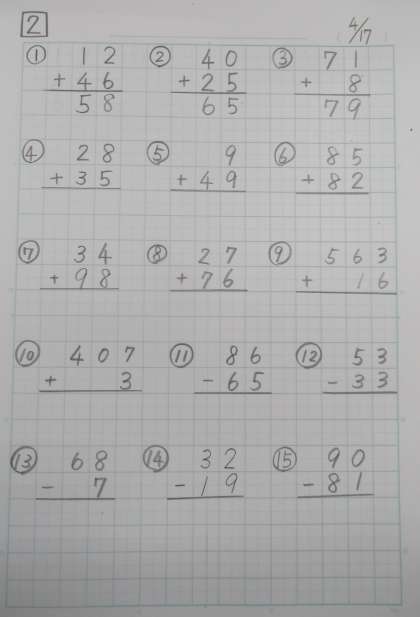 2 4/17
① 12 ② 40 ③ 71
+ 46 + 25 + 8
58 65 79
④ 28 ⑤ 9 ⑥ 85
+ 35 + 49 + 82
⑦ 34 ⑧ 27 ⑨ 563
+ 98 + 76 + 16
⑩ 407 ⑪ 86 ⑫ 53
+ 3 - 65 - 33
⑬ 68 ⑭ 32 ⑮ 90
- 7 - 19 - 81